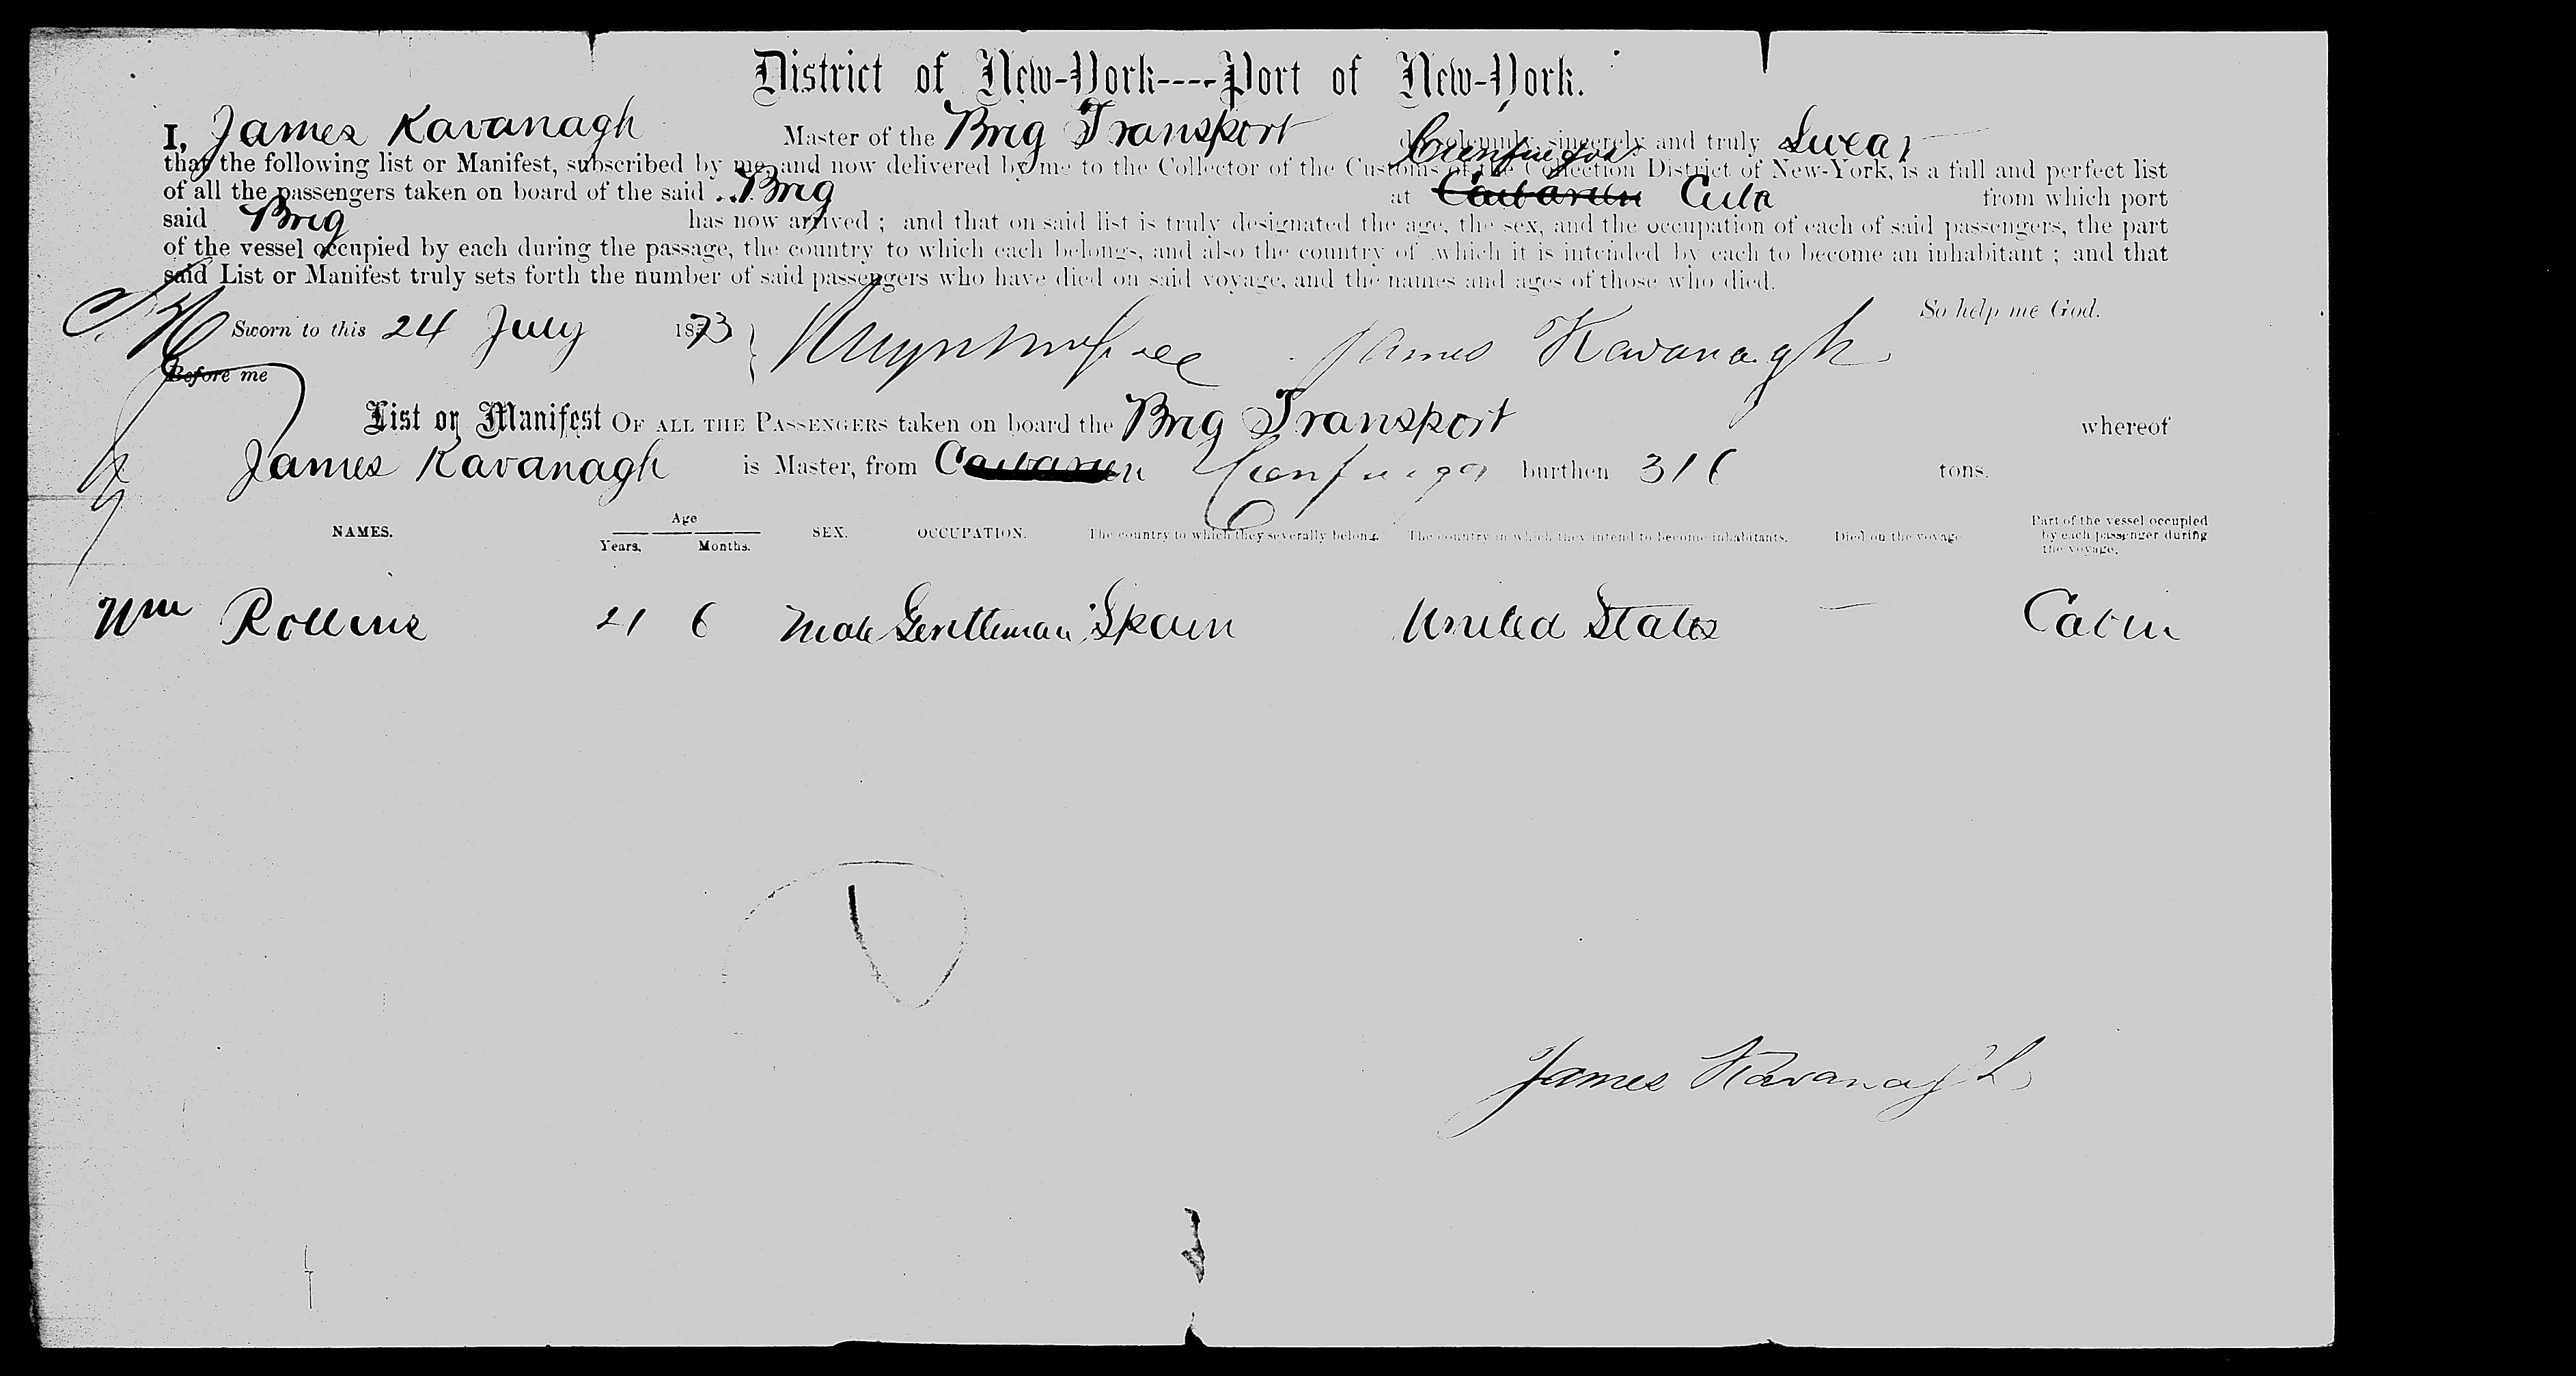 District of New-York----Port of New-York.
I, James Kavanagh Master of the Brig Transport do solemnly, sincerely and truly Swear
that the following list or Manifest, subscribed by me, and now delivered by me to the Collector of the Customs of the Collection District of New-York, is a full and perfect list
Cienfuegos
of all the passengers taken on board of the said Brig at Caibarien Cuba from which port
said Brig has now arrived ; and that on said list is truly designated the age, the sex, and the occupation of each of said passengers, the part
of the vessel occupied by each during the passage, the country to which each belongs, and also the country of which it is intended by each to become an inhabitant ; and that
said List or Manifest truly sets forth the number of said passengers who have died on said voyage, and the names and ages of those who died.
So help me God.
Sworn to this 24 July 1873 James Kavanagh
Before me
List or Manifest OF ALL THE PASSENGERS taken on board the Brig Transport whereof
James Kavanagh is Master, from Caibarien Cienfuegos burthen 316 tons.
NAMES. Age Years. Months. SEX. OCCUPATION. The country to which they severally belong. The country in which they intend to become inhabitants. Died on the voyage Part of the vessel occupied by each passenger during the voyage.
Wm Rollins 21 6 Male Gentleman Spain United States — Cabin
James Kavanagh